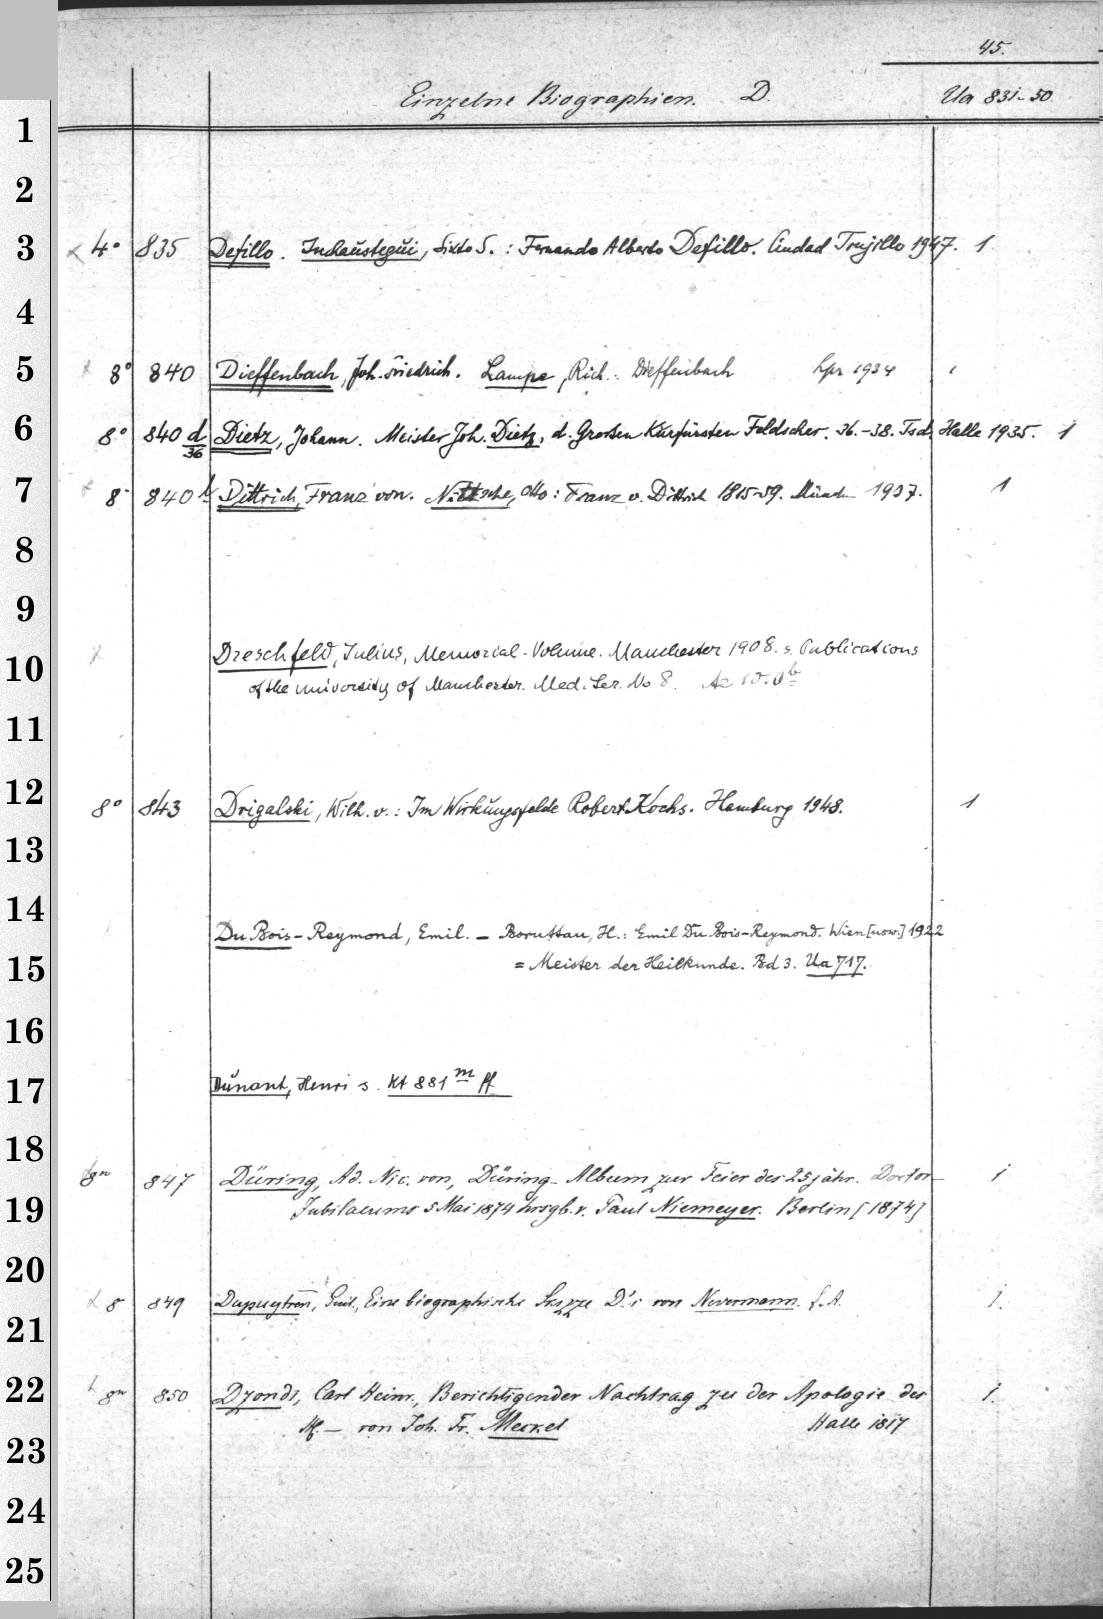 45.
Einzelne Biographien. D. Ua 831-50.
1
2
3 4° 835 Defillo. Inchaústegúi, Sixto S. : Fernando Alberto Defillo. Ciudad Trujillo 1947. 1
4
5 8° 840 Dieffenbach, Joh. Friedrich. Lampe, Rich.: Dieffenbach Lpz 1934 1
6 8° 840 d/36 Dietz, Johann. Meister Joh. Dietz, d. Großen Kurfürsten Feldscher. 36.-38. Tsd. Halle 1935. 1
7 8° 840 Dittrich, Franz von. Nittsche, Otto: Franz v. Dittrich 1815-59. Münch 1937. 1
8
9
10 Dreschfeld, Julius, Memorial-Volume. Manchester 1908. s. Publications
of the university of Manchester. Med. Ser. No 8.
11
12 8° 843 Drigalski, Wilh. v. : Im Wirkungsfelde Robert Kochs. Hamburg 1948. 1
13
14 Du Bois-Reymond, Emil. – Boruttau, H.: Emil Du Bois-Reymond. Wien [usw.] 1922
15 = Meister der Heilkunde. Bd 3. Ua 717.
16
17 Dúnant, Henri s. Kt 881 m ff
18 8° 847 Düring, Ad. Nic. von, Düring-Album zur Feier des 25jähr. Doctor-
19 Jubilaeums 5 Mai 1874 hrsgb. v. Paul Niemeyer. Berlin [1874] 1
20
8 849 Dupuytren, Guil., Eine biographische Skizze D.'s von Nevermann. s. A. 1.
21
22 8° 850 Dzondi, Carl Heinr., Berichtigender Nachtrag zu der Apologie des 1.
Hf. – von Joh. Fr. Meckel Halle 1817
23
24
25